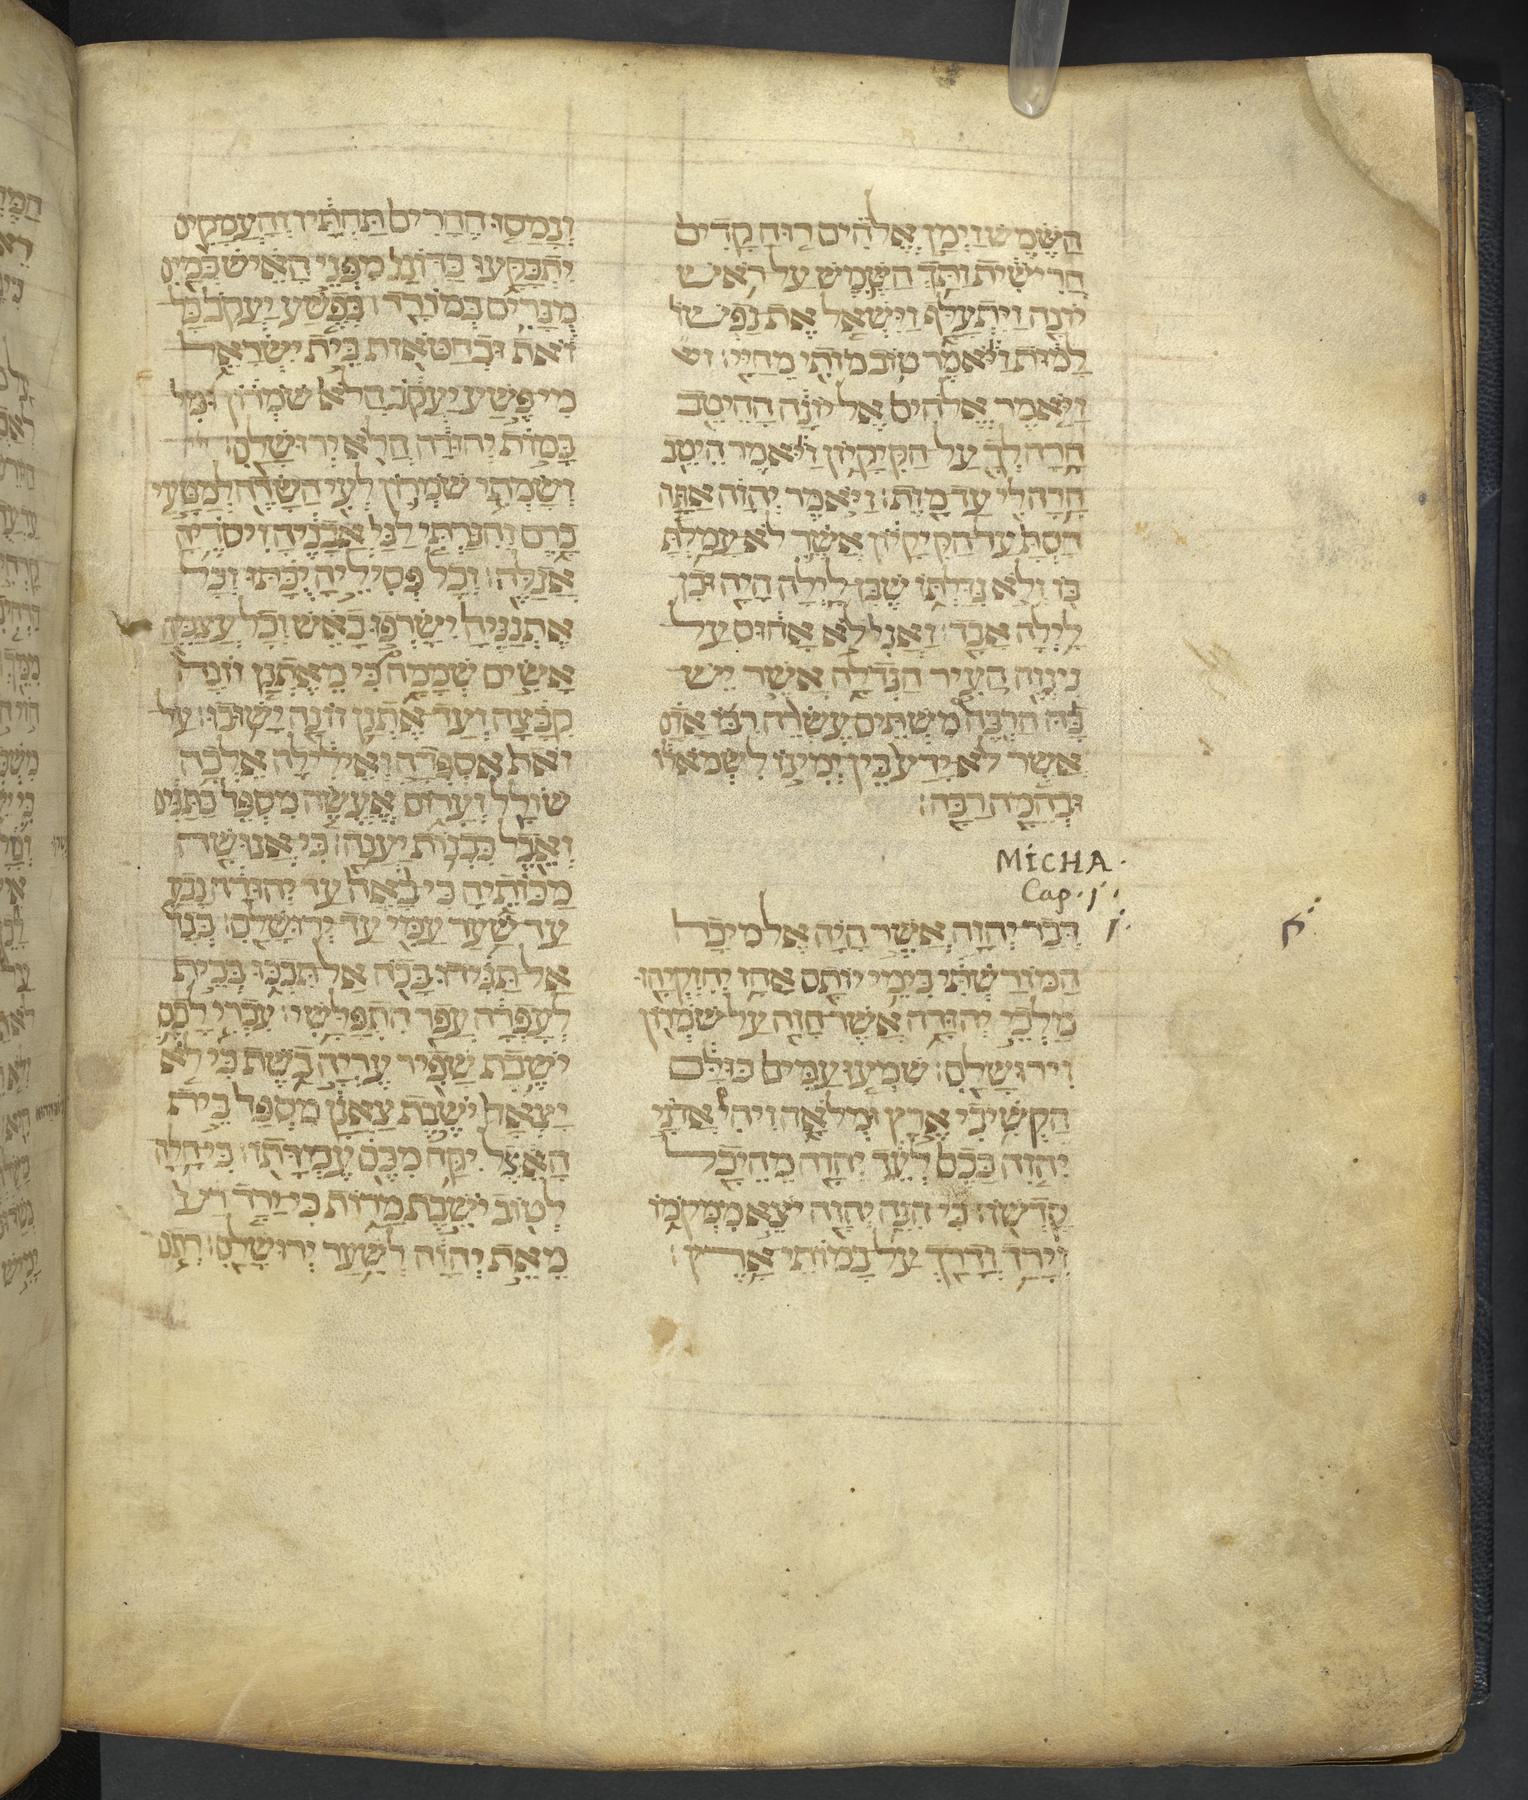 הַשֶּׁמֶשׁ וַיְמַן אֱלֹהִים רוּחַ קָדִים
חֲרִישִׁית וַתַּךְ הַשֶּׁמֶשׁ עַל רֹאשׁ
יוֹנָה וַיִּתְעַלָּף וַיִּשְׁאַל אֶת נַפְשׁוֹ
לָמוּת וַיֹּאמֶר טוֹב מוֹתִי מֵחַיָּי׃
וַיֹּאמֶר אֱלֹהִים אֶל יוֹנָה הַהֵיטֵב
חָרָה לְךָ עַל הַקִּיקָיוֹן וַיֹּאמֶר הֵיטֵב
חָרָה לִי עַד מָוֶת׃ וַיֹּאמֶר יְהוָה אַתָּה
חַסְתָּ עַל הַקִּיקָיוֹן אֲשֶׁר לֹא עָמַלְתָּ
בּוֹ וְלֹא גִדַּלְתּוֹ שֶׁבִּן לַיְלָה הָיָה וּבִן
לַיְלָה אָבָד׃ וַאֲנִי לֹא אָחוּס עַל
נִינְוֵה הָעִיר הַגְּדֹלָה אֲשֶׁר יֶשׁ
בָּהּ הַרְבֵּה מִשְׁתֵּים עֶשְׂרֵה רִבּוֹ אָדָם
אֲשֶׁר לֹא יָדַע בֵּין יְמִינוֹ לִשְׂמֹאלוֹ
וּבְהֵמָה רַבָּה׃
MICHA.
Cap. 1.
דְּבַר יְהוָה אֲשֶׁר הָיָה אֶל מִיכָה 1. א
הַמּוֹרַשְׁתִּי בִּימֵי יוֹתָם אָחָז יְחִזְקִיָּהוּ
מַלְכֵי יְהוּדָה אֲשֶׁר חָזָה עַל שֹׁמְרוֹן
וִירוּשָׁלִָם׃ שִׁמְעוּ עַמִּים כּוּלָּם
הַקְשִׁיבִי אֶרֶץ וּמְלֹאָהּ וִיהִי אֲדֹנָי
יְהוִה בָּכֶם לְעֵד יְהוָה מֵהֵיכַל
קָדְשׁוֹ׃ כִּי הִנֵּה יְהוָה יֹצֵא מִמְּקֹמוֹ
וְיָרַד וְדָרַךְ עַל בָּמוֹתֵי אָרֶץ׃
וְנָמַסּוּ הֶהָרִים תַּחְתָּיו וְהָעֲמָקִים
יִתְבַּקָּעוּ כַּדּוֹנַג מִפְּנֵי הָאֵשׁ כְּמַיִם
מֻגָּרִים בְּמוֹרָד׃ בְּפֶשַׁע יַעֲקֹב כָּל
זֹאת וּבְחַטֹּאות בֵּית יִשְׂרָאֵל
מִי פֶשַׁע יַעֲקֹב הֲלֹא שֹׁמְרוֹן וּמִי
בָּמוֹת יְהוּדָה הֲלֹא יְרוּשָׁלִָם׃
וְשַׂמְתִּי שֹׁמְרוֹן לְעִי הַשָּׂדֶה לְמַטָּעֵי
כָרֶם וְהִגַּרְתִּי לַגַּי אֲבָנֶיהָ וִיסֹדֶיהָ
אֲגַלֶּה׃ וְכָל פְּסִילֶיהָ יֻכַּתּוּ וְכָל
אֶתְנַנֶּיהָ יִשָּׂרְפוּ בָאֵשׁ וְכָל עֲצַבֶּיהָ
אָשִׂים שְׁמָמָה כִּי מֵאֶתְנַן זוֹנָה
קִבָּצָה וְעַד אֶתְנַן זוֹנָה יָשׁוּבוּ׃ עַל
זֹאת אֶסְפְּדָה וְאֵילִילָה אֵלְכָה
שׁוֹלָל וְעָרוֹם אֶעֱשֶׂה מִסְפֵּד כַּתַּנִּים
וְאֵבֶל כִּבְנוֹת יַעֲנָה׃ כִּי אֲנוּשָׁה
מַכּוֹתֶיהָ כִּי בָאָה עַד יְהוּדָה נָגַע
עַד שַׁעַר עַמִּי עַד יְרוּשָׁלִָם׃ בְּגַת
אַל תַּגִּידוּ בָּכֹה אַל תִּבְכּוּ בְּבֵית
לְעַפְרָה עָפָר הִתְפַּלָּשִׁי׃ עִבְרִי לָכֶם
יוֹשֶׁבֶת שָׁפִיר עֶרְיָה בֹשֶׁת לֹא
יָצְאָה יוֹשֶׁבֶת צַאֲנָן מִסְפַּד בֵּית
הָאֵצֶל יִקַּח מִכֶּם עֶמְדָּתוֹ׃ כִּי חָלָה
לְטוֹב יוֹשֶׁבֶת מָרוֹת כִּי יָרַד רָע
מֵאֵת יְהוָה לְשַׁעַר יְרוּשָׁלִָם׃ רְתֹם